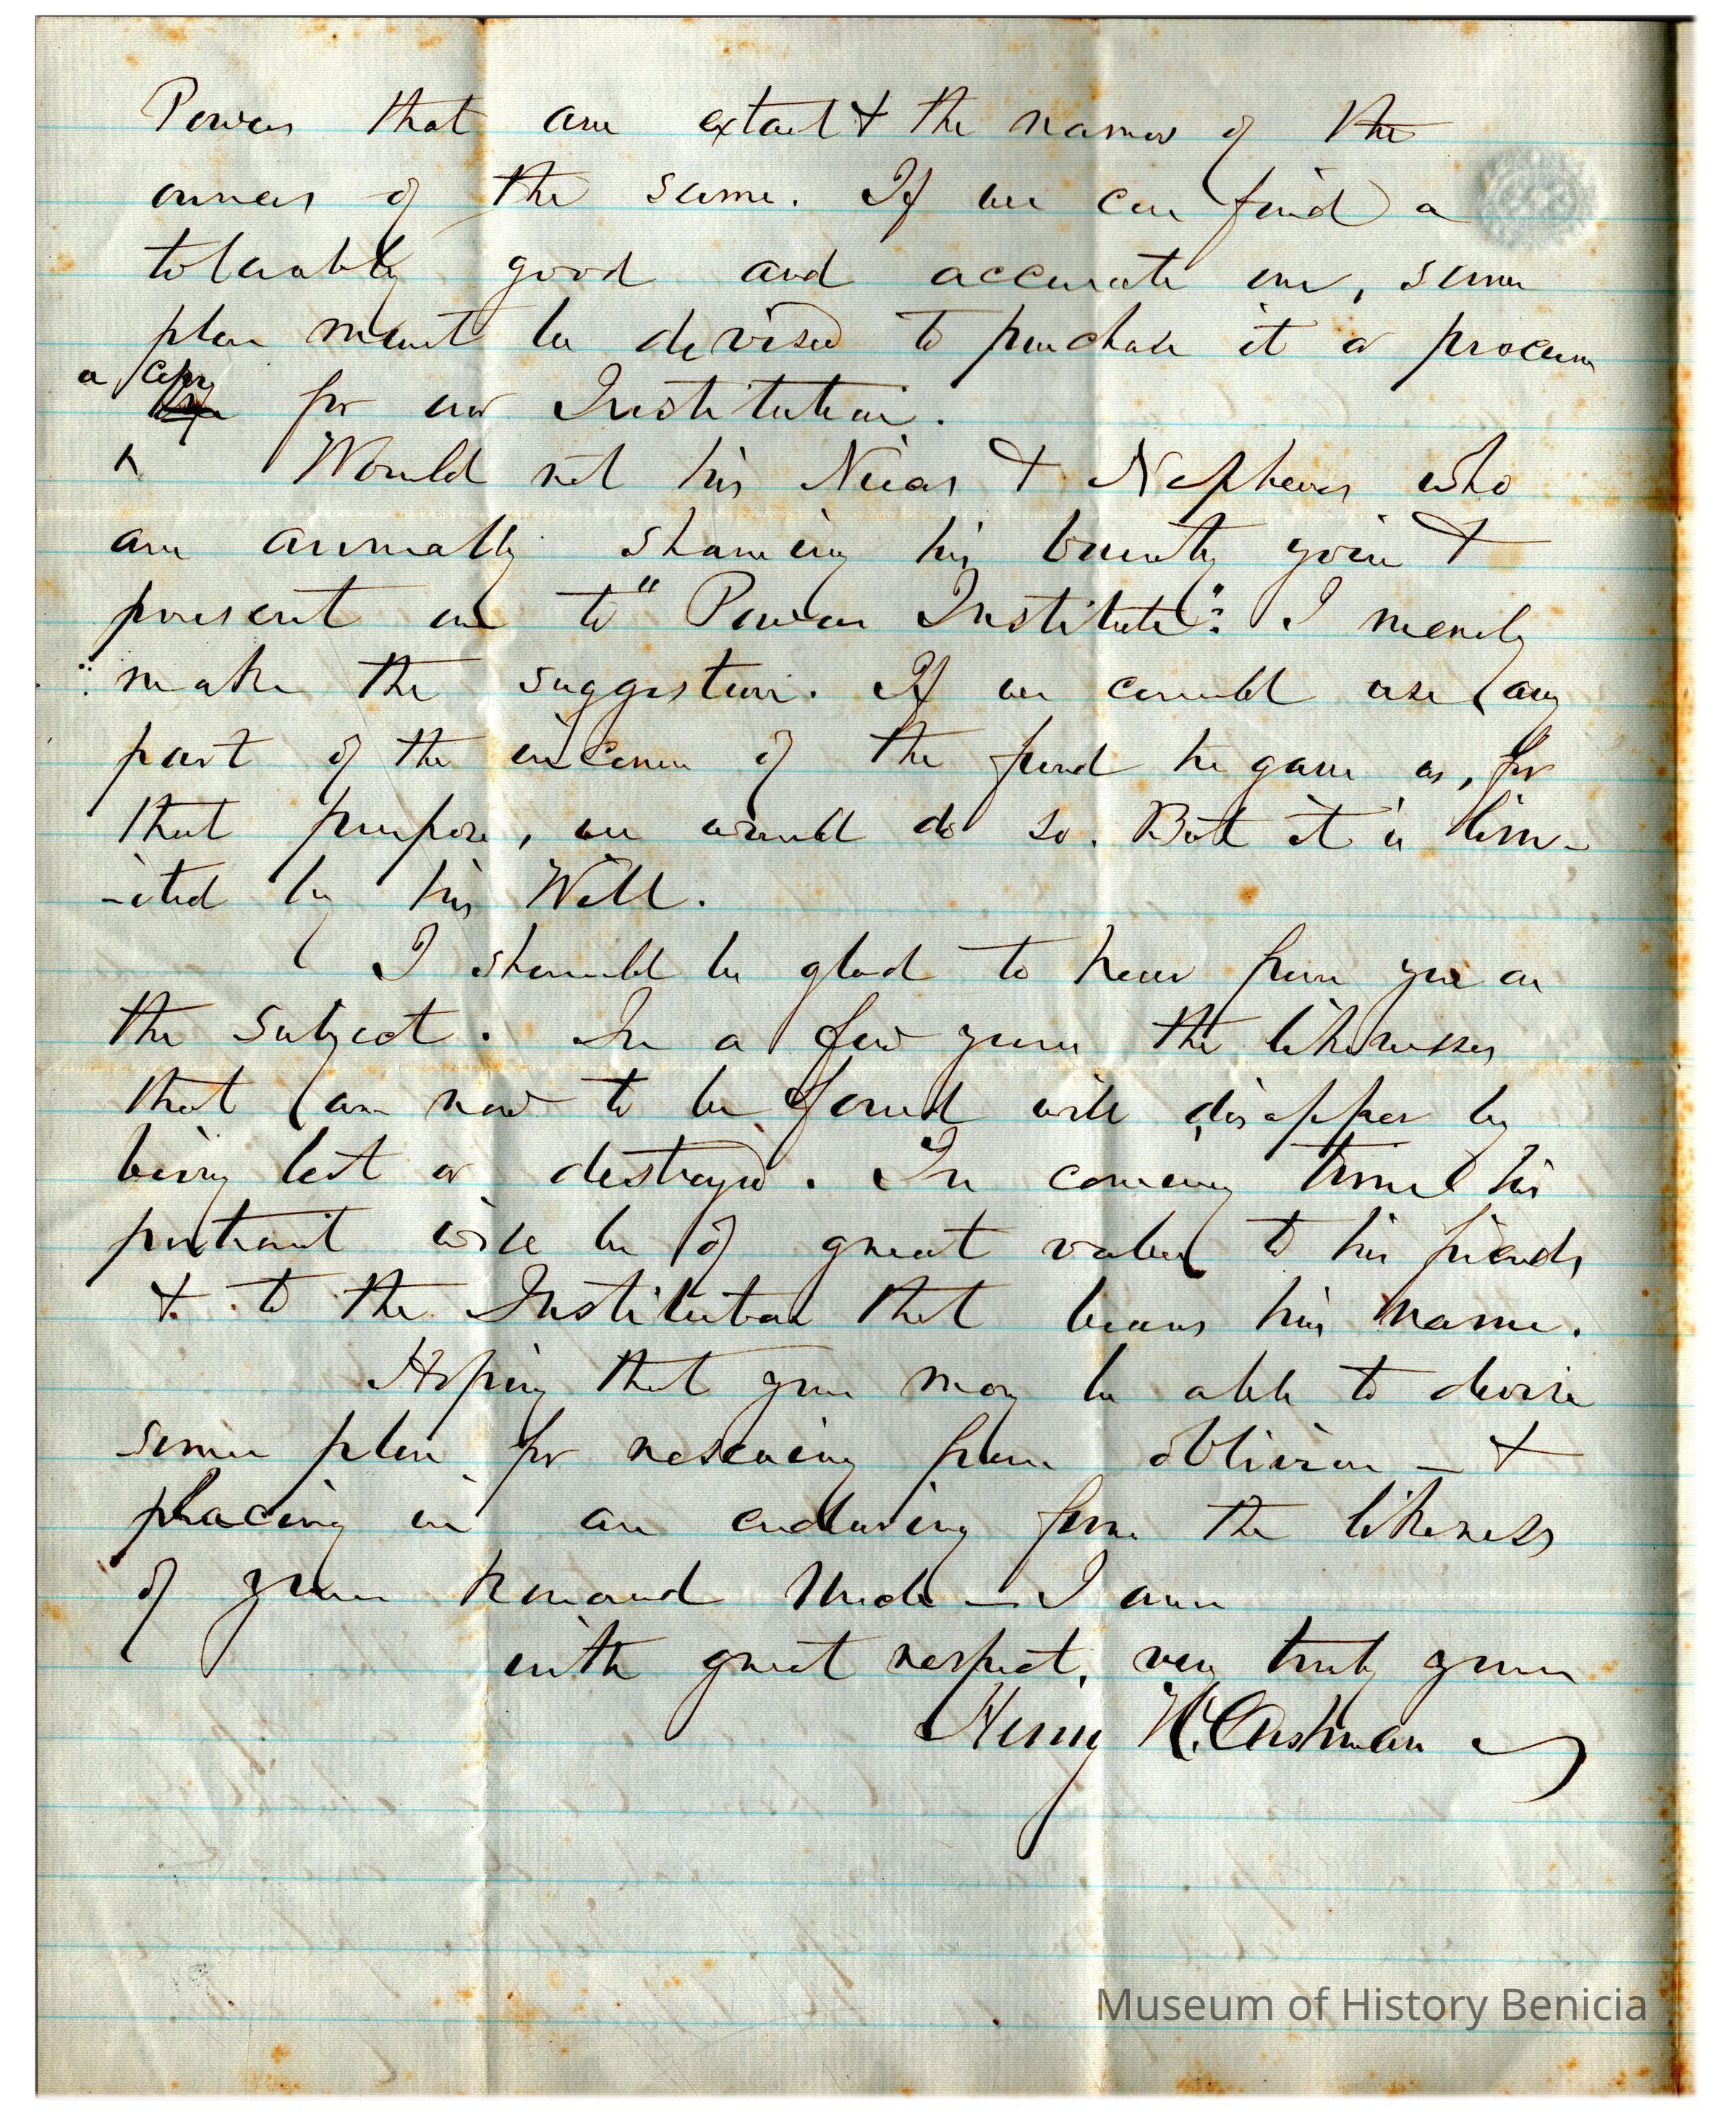 Powers that are extant & the names of the
owners of the same. If we can find a
tolerably good and accurate one, some
plan must be devised to purchase it or procure
a copy
for our Institution.
Would not his Nieces & Nephews who
are annually sharing his bounty join &
present one to "Powers Institute": I merely
make the suggestion. If we could use any
part of the income of the fund he gave us, for
that purpose, we would do so. But it is lim-
-ited by his Will.
I should be glad to hear from you on
the subject. In a few years the likenesses
that are now to be found will disappear by
being lost or destroyed. In coming time his
portrait will be of great value to his friends
& to the Institution that bears his name.
Hoping that you may be able to devise
some plan for rescuing from oblivion — &
placing in an enduring form the likeness
of your honored Uncle — I am
with great respect, very truly yours
Henry W. Cushman
Museum of History Benicia